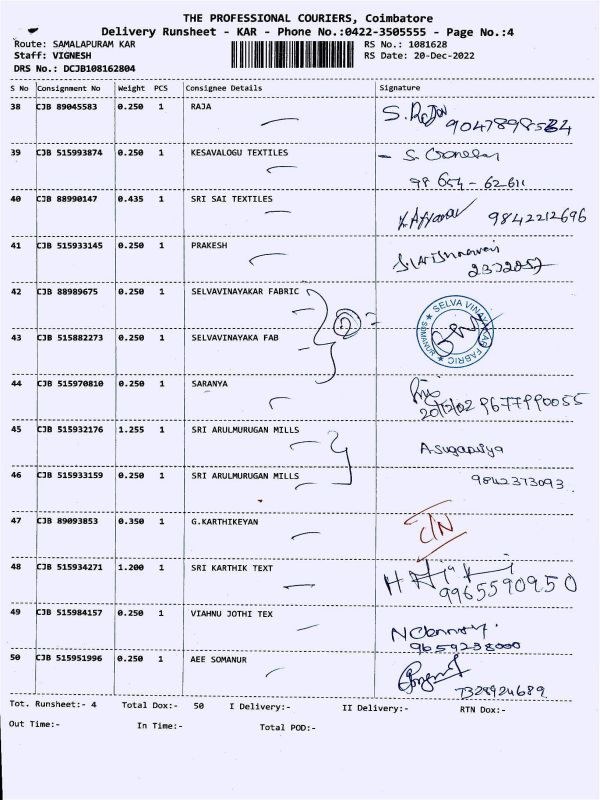 THE PROFESSIONAL COURIERS, Coimbatore
Delivery Runsheet - KAR - Phone No.:0422-3505555 - Page No.:4
Route: SAMALAPURAM KAR RS No.: 1081628
Staff: VIGNESH RS Date: 20-Dec-2022
DRS No.: DCJB108162804
S No Consignment No Weight PCS Consignee Details Signature
38 CJB 89045583 0.250 1 RAJA
39 CJB 515993874 0.250 1 KESAVALOGU TEXTILES
98 654 - 62611
40 CJB 88990147 0.435 1 SRI SAI TEXTILES 9842212696
41 CJB 515933145 0.250 1 PRAKESH
2372057
42 CJB 88989675 0.250 1 SELVAVINAYAKAR FABRIC
SELVA VINAYAKAR FABRIC SOMANUR
43 CJB 515882273 0.250 1 SELVAVINAYAKA FAB
44 CJB 515970810 0.250 1 SARANYA
9677990055
45 CJB 515932176 1.255 1 SRI ARULMURUGAN MILLS
46 CJB 515933159 0.250 1 SRI ARULMURUGAN MILLS 9842373093
47 CJB 89093853 0.350 1 G.KARTHIKEYAN C/N
48 CJB 515934271 1.200 1 SRI KARTHIK TEXT
9965590950
49 CJB 515984157 0.250 1 VIAHNU JOTHI TEX
9659238000
50 CJB 515951996 0.250 1 AEE SOMANUR
7328924689
Tot. Runsheet:- 4 Total Dox:- 50 I Delivery:- II Delivery:- RTN Dox:-
Out Time:- In Time:- Total POD:-